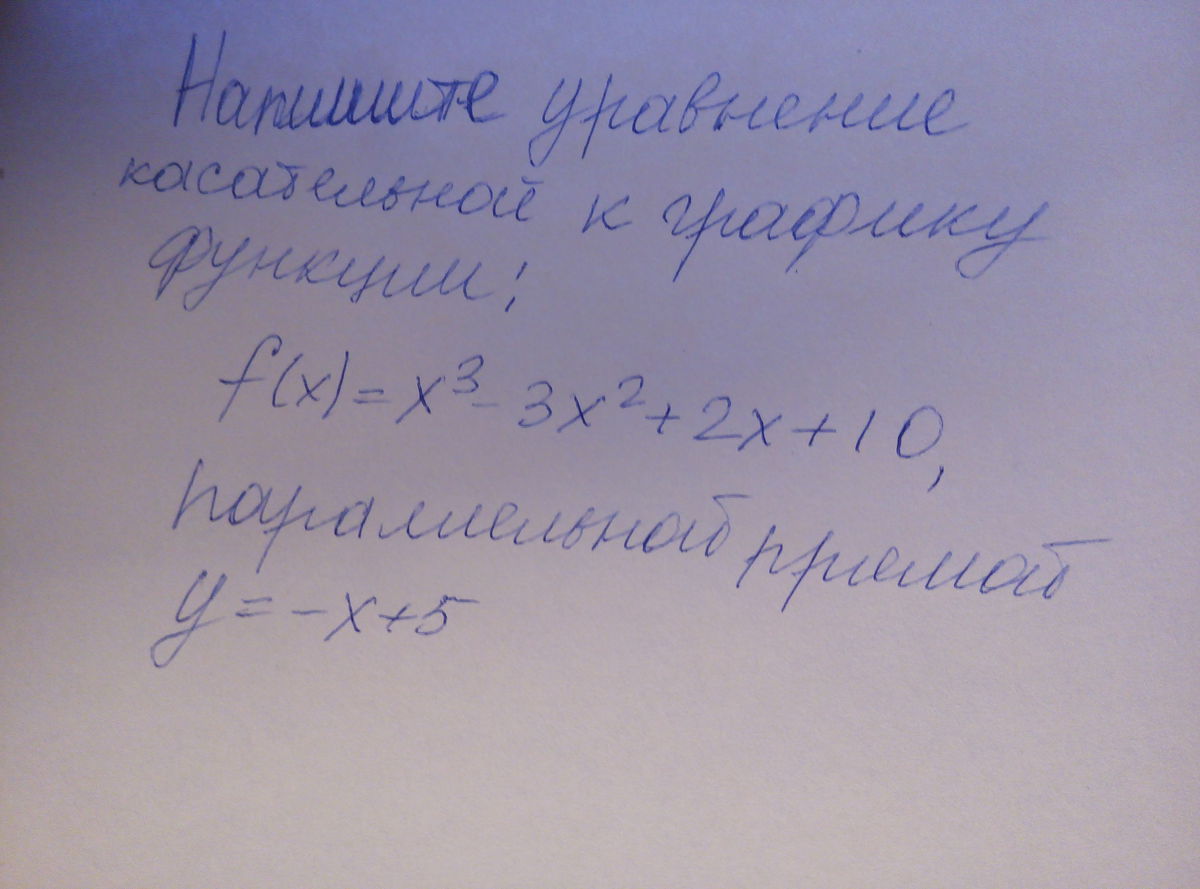 Напишите уравнение
касательной к графику
функции:
f(x)=x³-3x²+2x+10,
параллельной прямой
y=-x+5